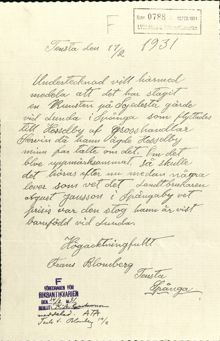 0788
Tensta den 17/2 1931
Undertecknad vill härmed
medela att det har stagit
en Runsten på Igelsta gärde
vid Lunda i Spånga som flyttades
till Hesselby af Grosshandlar
då hann ägde Hesselby
minn far talte om det. Om det
blev uppmärksammat så skulle
det höras efter nu medan några
lever som vet det Landtbrukaren
August Jansson i Spångaby vet
präsis var den stog hann är vist
barnfödd vid Lunda.
Högacktningsfullt
Frans Blomberg
Tensta
Spånga
RIKSANTIKVARIEN
ATA